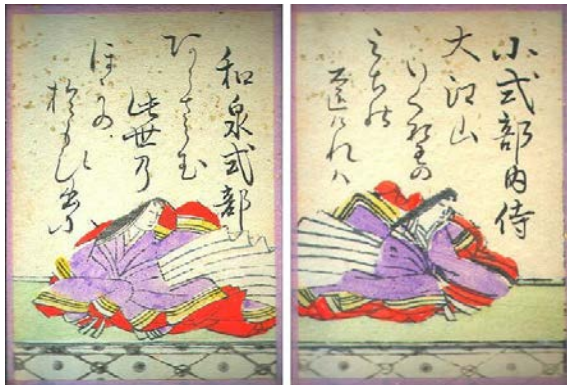 和泉式部
あらさらむ
此世乃
ほかの
於もひ出に
小式部内侍
大江山
いく野の
みちの
遠けれハ